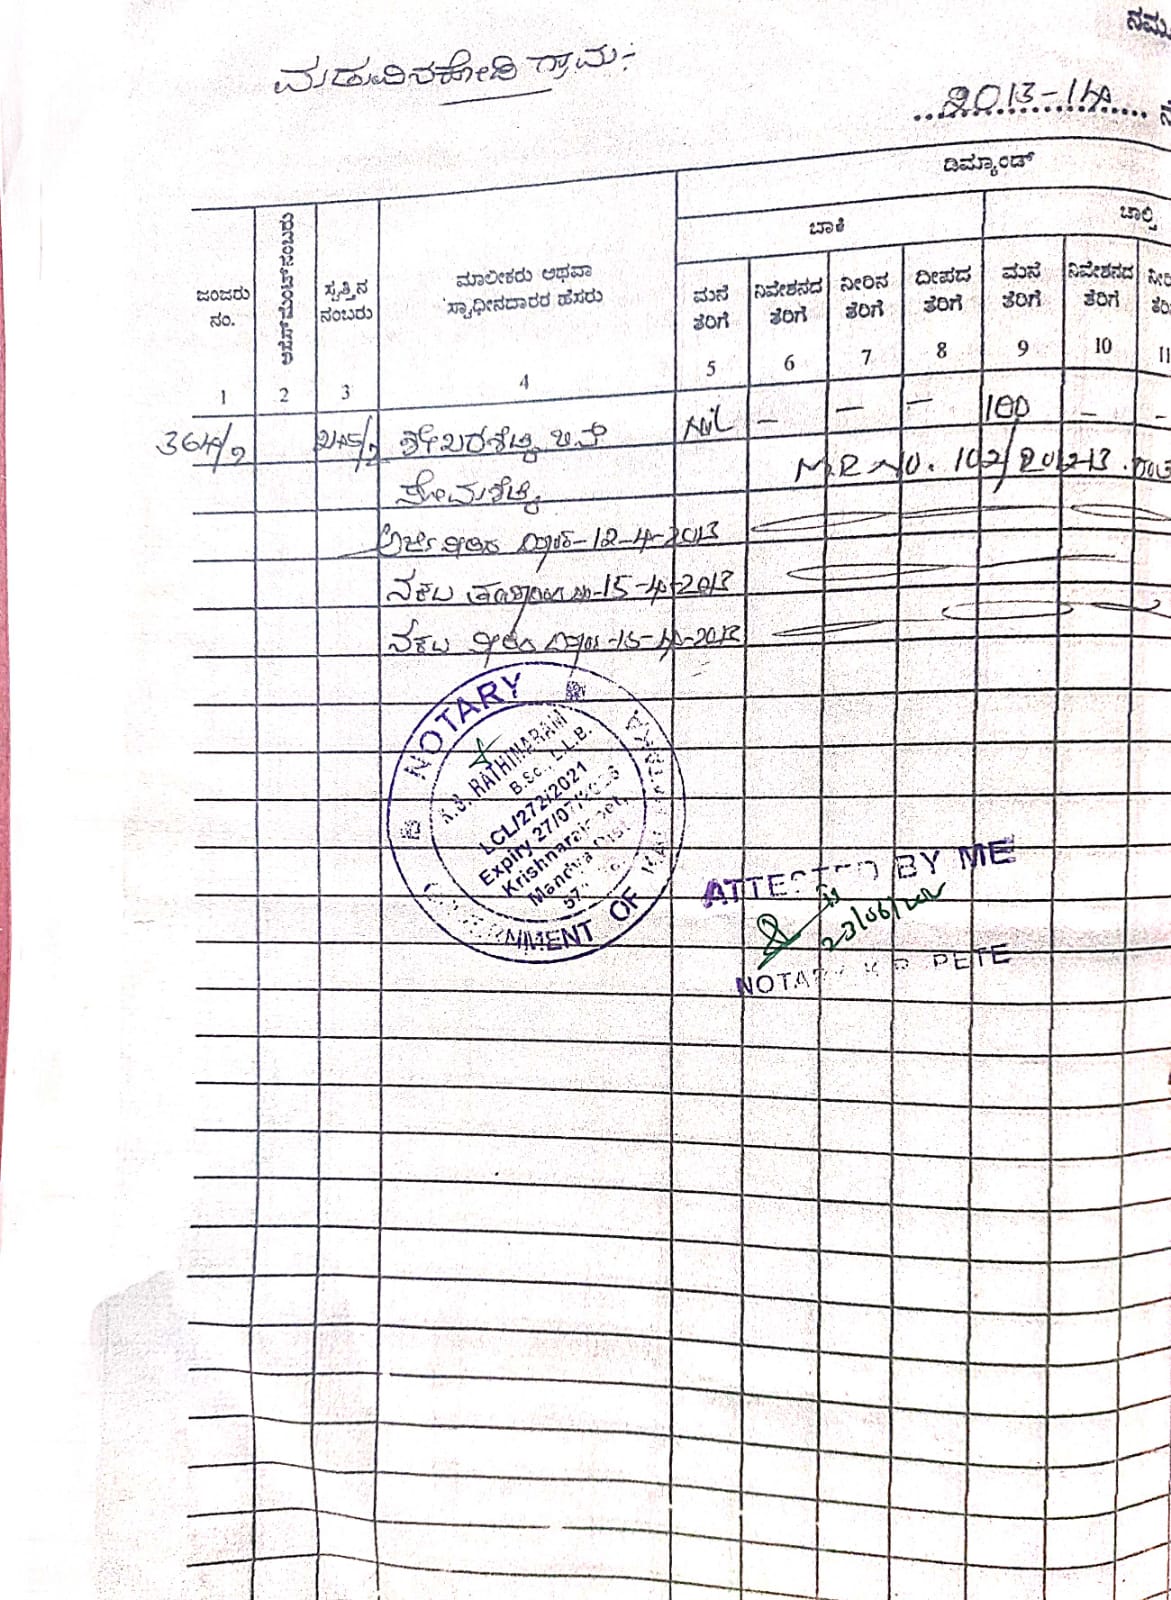 ನಮೂ
ಮಡುವಿನಕೋಡಿ ಗ್ರಾಮ:-
2013-14
ಡಿಮ್ಯಾಂಡ್
ಬಾಕಿ
ಚಾಲ್ತಿ
ಜಂಜರು ನಂ.
ಅಸೆಸ್‌ಮೆಂಟ್ ನಂಬರು
ಸ್ವತ್ತಿನ ನಂಬರು
ಮಾಲೀಕರು ಅಥವಾ ಸ್ವಾಧೀನದಾರರ ಹೆಸರು
ಮನೆ ತೆರಿಗೆ
ನಿವೇಶನದ ತೆರಿಗೆ
ನೀರಿನ ತೆರಿಗೆ
ದೀಪದ ತೆರಿಗೆ
ಮನೆ ತೆರಿಗೆ
ನಿವೇಶನದ ತೆರಿಗೆ
1 2 3 4 5 6 7 8 9 10 11
364/2 ಶೇಖರಶೆಟ್ಟಿ ಬಿನ್ Nil — — — 100 — —
ಸೋಮಶೆಟ್ಟಿ M.R NO. 102/2012-13
12-4-2013
ನಕಲು 15-4-2013
ನಕಲು 15-4-2013
NOTARY
RATHNARAM
B.Sc., L.L.B.
LCL/272/2021
Expiry 27/07/
Krishnarajpet,
Mandya Dist
GOVERNMENT OF KARNATAKA
ATTESTED BY ME
23/06/202
NOTARY K.R. PETE